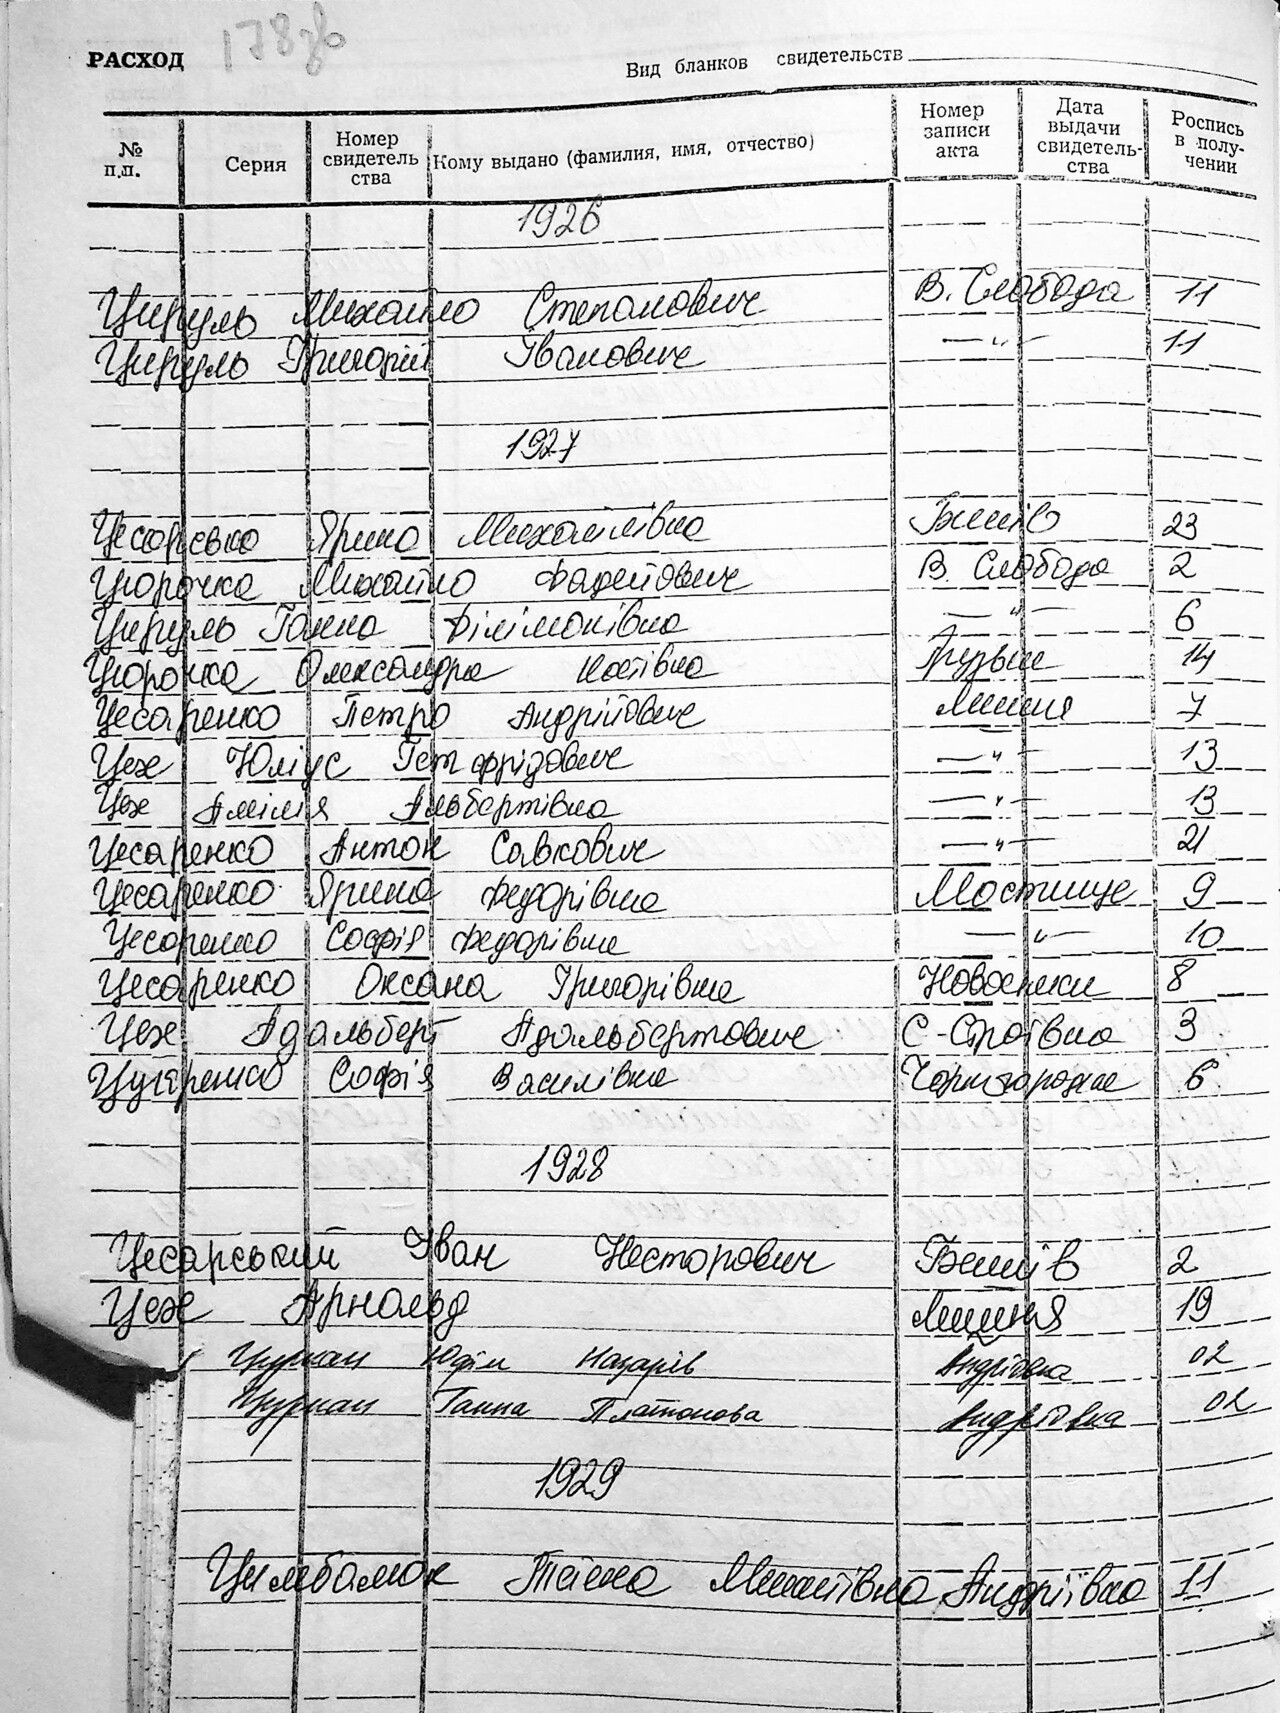 178зв
РАСХОД
Вид бланков свидетельств
№ п.п.
Серия
Номер свидетель ства
Кому выдано (фамилия, имя, отчество)
Номер записи акта
Дата выдачи свидетель- ства
Роспись в полу- чении
1926
Цируль Михайло Степанович В. Слобода 11
Цируль Григорій Іванович —"— 11
1927
Цесарсько Ярина Михайлівна Бишів 23
Цюрочка Михайло Фадейович В. Слобода 2
Цируль Ганна Філімонівна —"— 6
Цюрочка Олександра 14
Цесаренко Петро Андрійович Лишня 7
Цех Юліус Готфрідович —"— 13
Цех Амілія Альбертівна —"— 13
Цесаренко Антон Савкович —"— 21
Цесаренко Ярина Федорівна Мостище 9
Цесаренко Софія Федорівна —"— 10
Цесаренко Оксана Григорівна Новосілки 8
Цех Адальберт Адальбертович 3
Софія Василівна Чорногородка 6
1928
Цесарський Іван Несторович Бишів 2
Цех Арнольд Лишня 19
Цурман Юфім Назарів Андріївка 02
Цурман Ганна Платонова Андріївка 02
1929
Андріївка 11